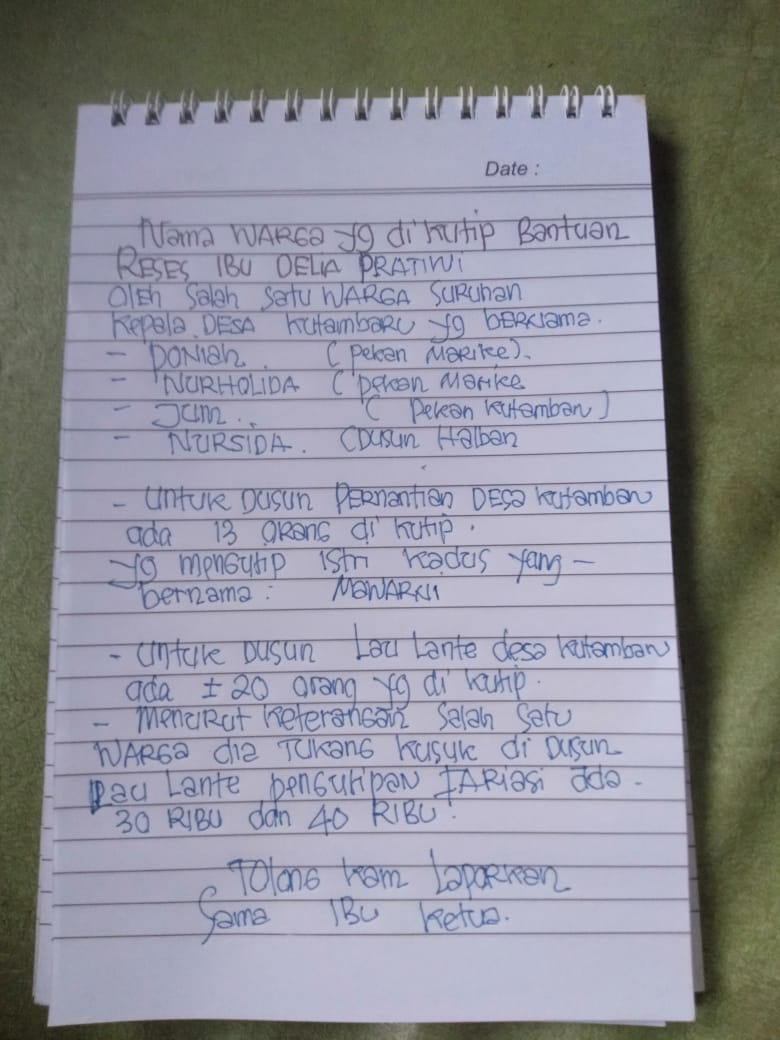 Date :
Nama WARGA yg di kutip Bantuan
RESES IBU DELIA PRATIWI
OLEH Salah Satu WARGA SURUHAN
Kepala DESA Kutambaru yg BERNAMA.
- PONIAH. ( Pekan MARIKE).
- NURHOLIDA ( Pekan Marike
- JUM.. ( Pekan Kutambaru )
- NURSIDA. (Dusun Halban
- UNTUK DUSUN PERNANTIAN DESA Kutambaru
ada 13 ORANG di kutip.
yg mengutip Istri Kadus yang -
bernama : MAWARNI
- UNTUK DUSUN Lau Lante desa Kutambaru
ada ± 20 orang yg di kutip.
- Menurut Keterangan Salah Satu
WARGA dia TUKANG Kusuk di Dusun
Lau Lante pengutipan FARiasi ada.
30 RIBU dan 40 RIBU.
TOlong kam Laporkan
Sama IBU Ketua.